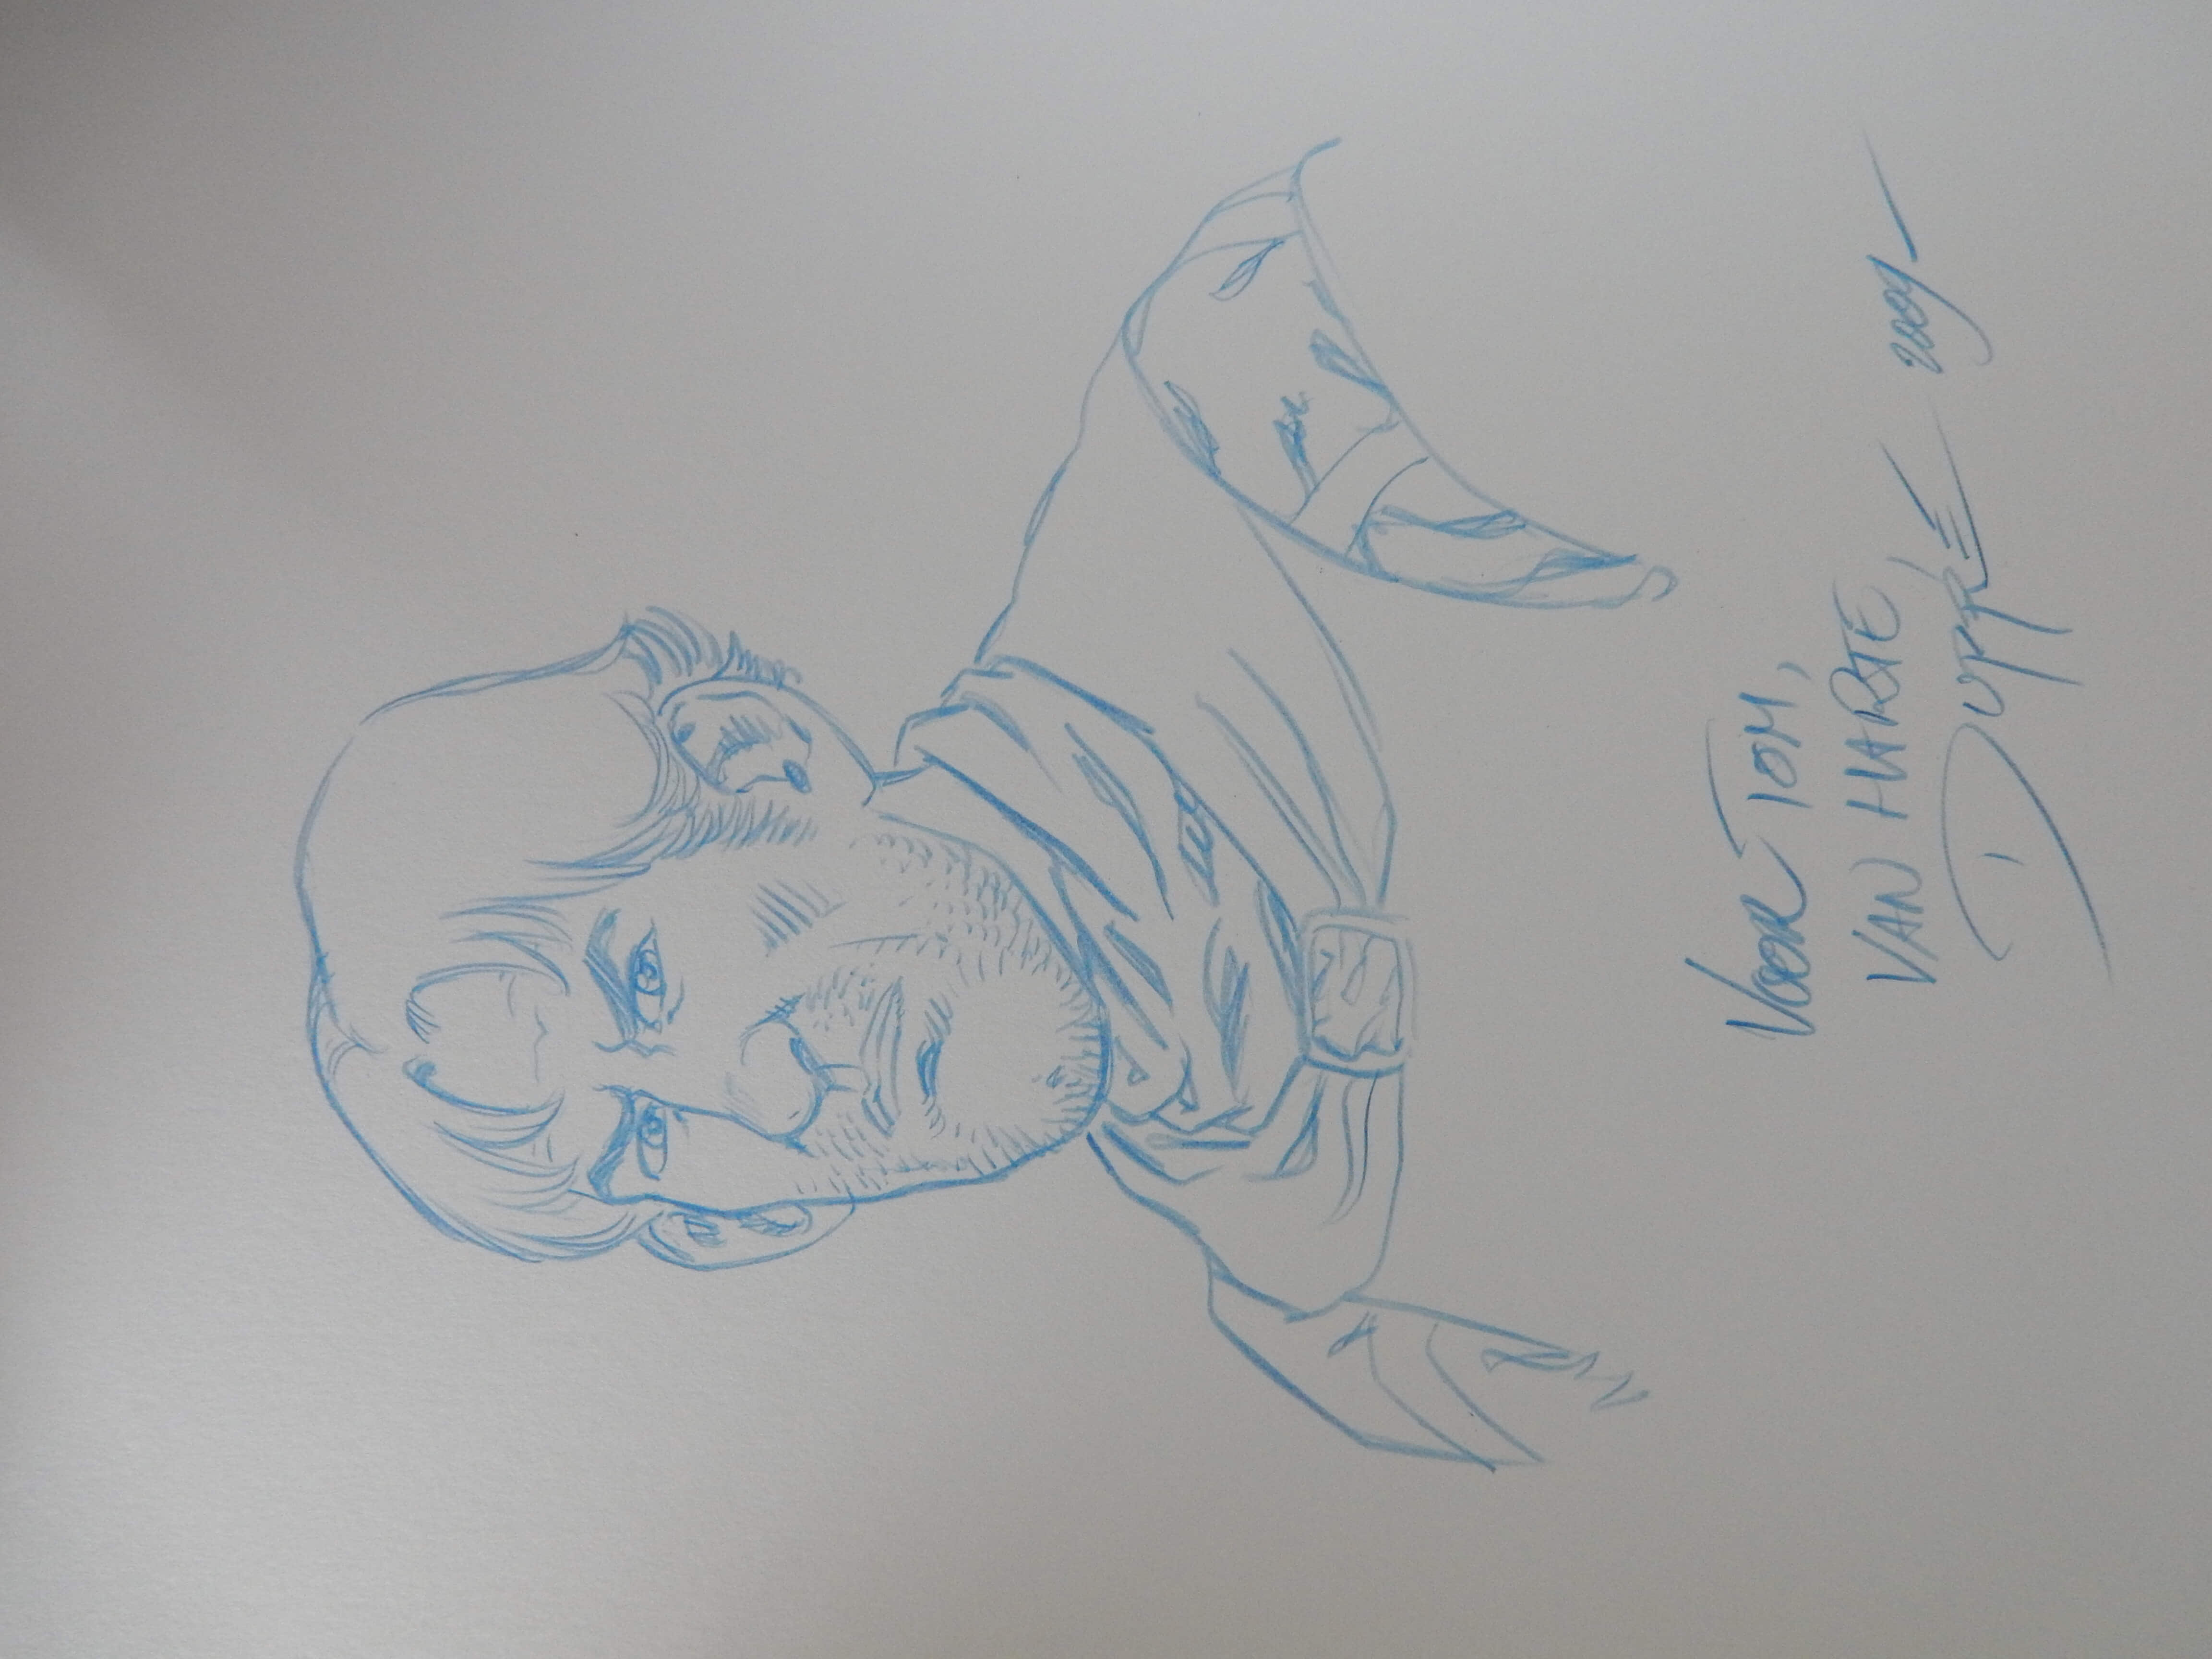 VOOR TOM,
VAN HARTE,
DUPRÉ 2009